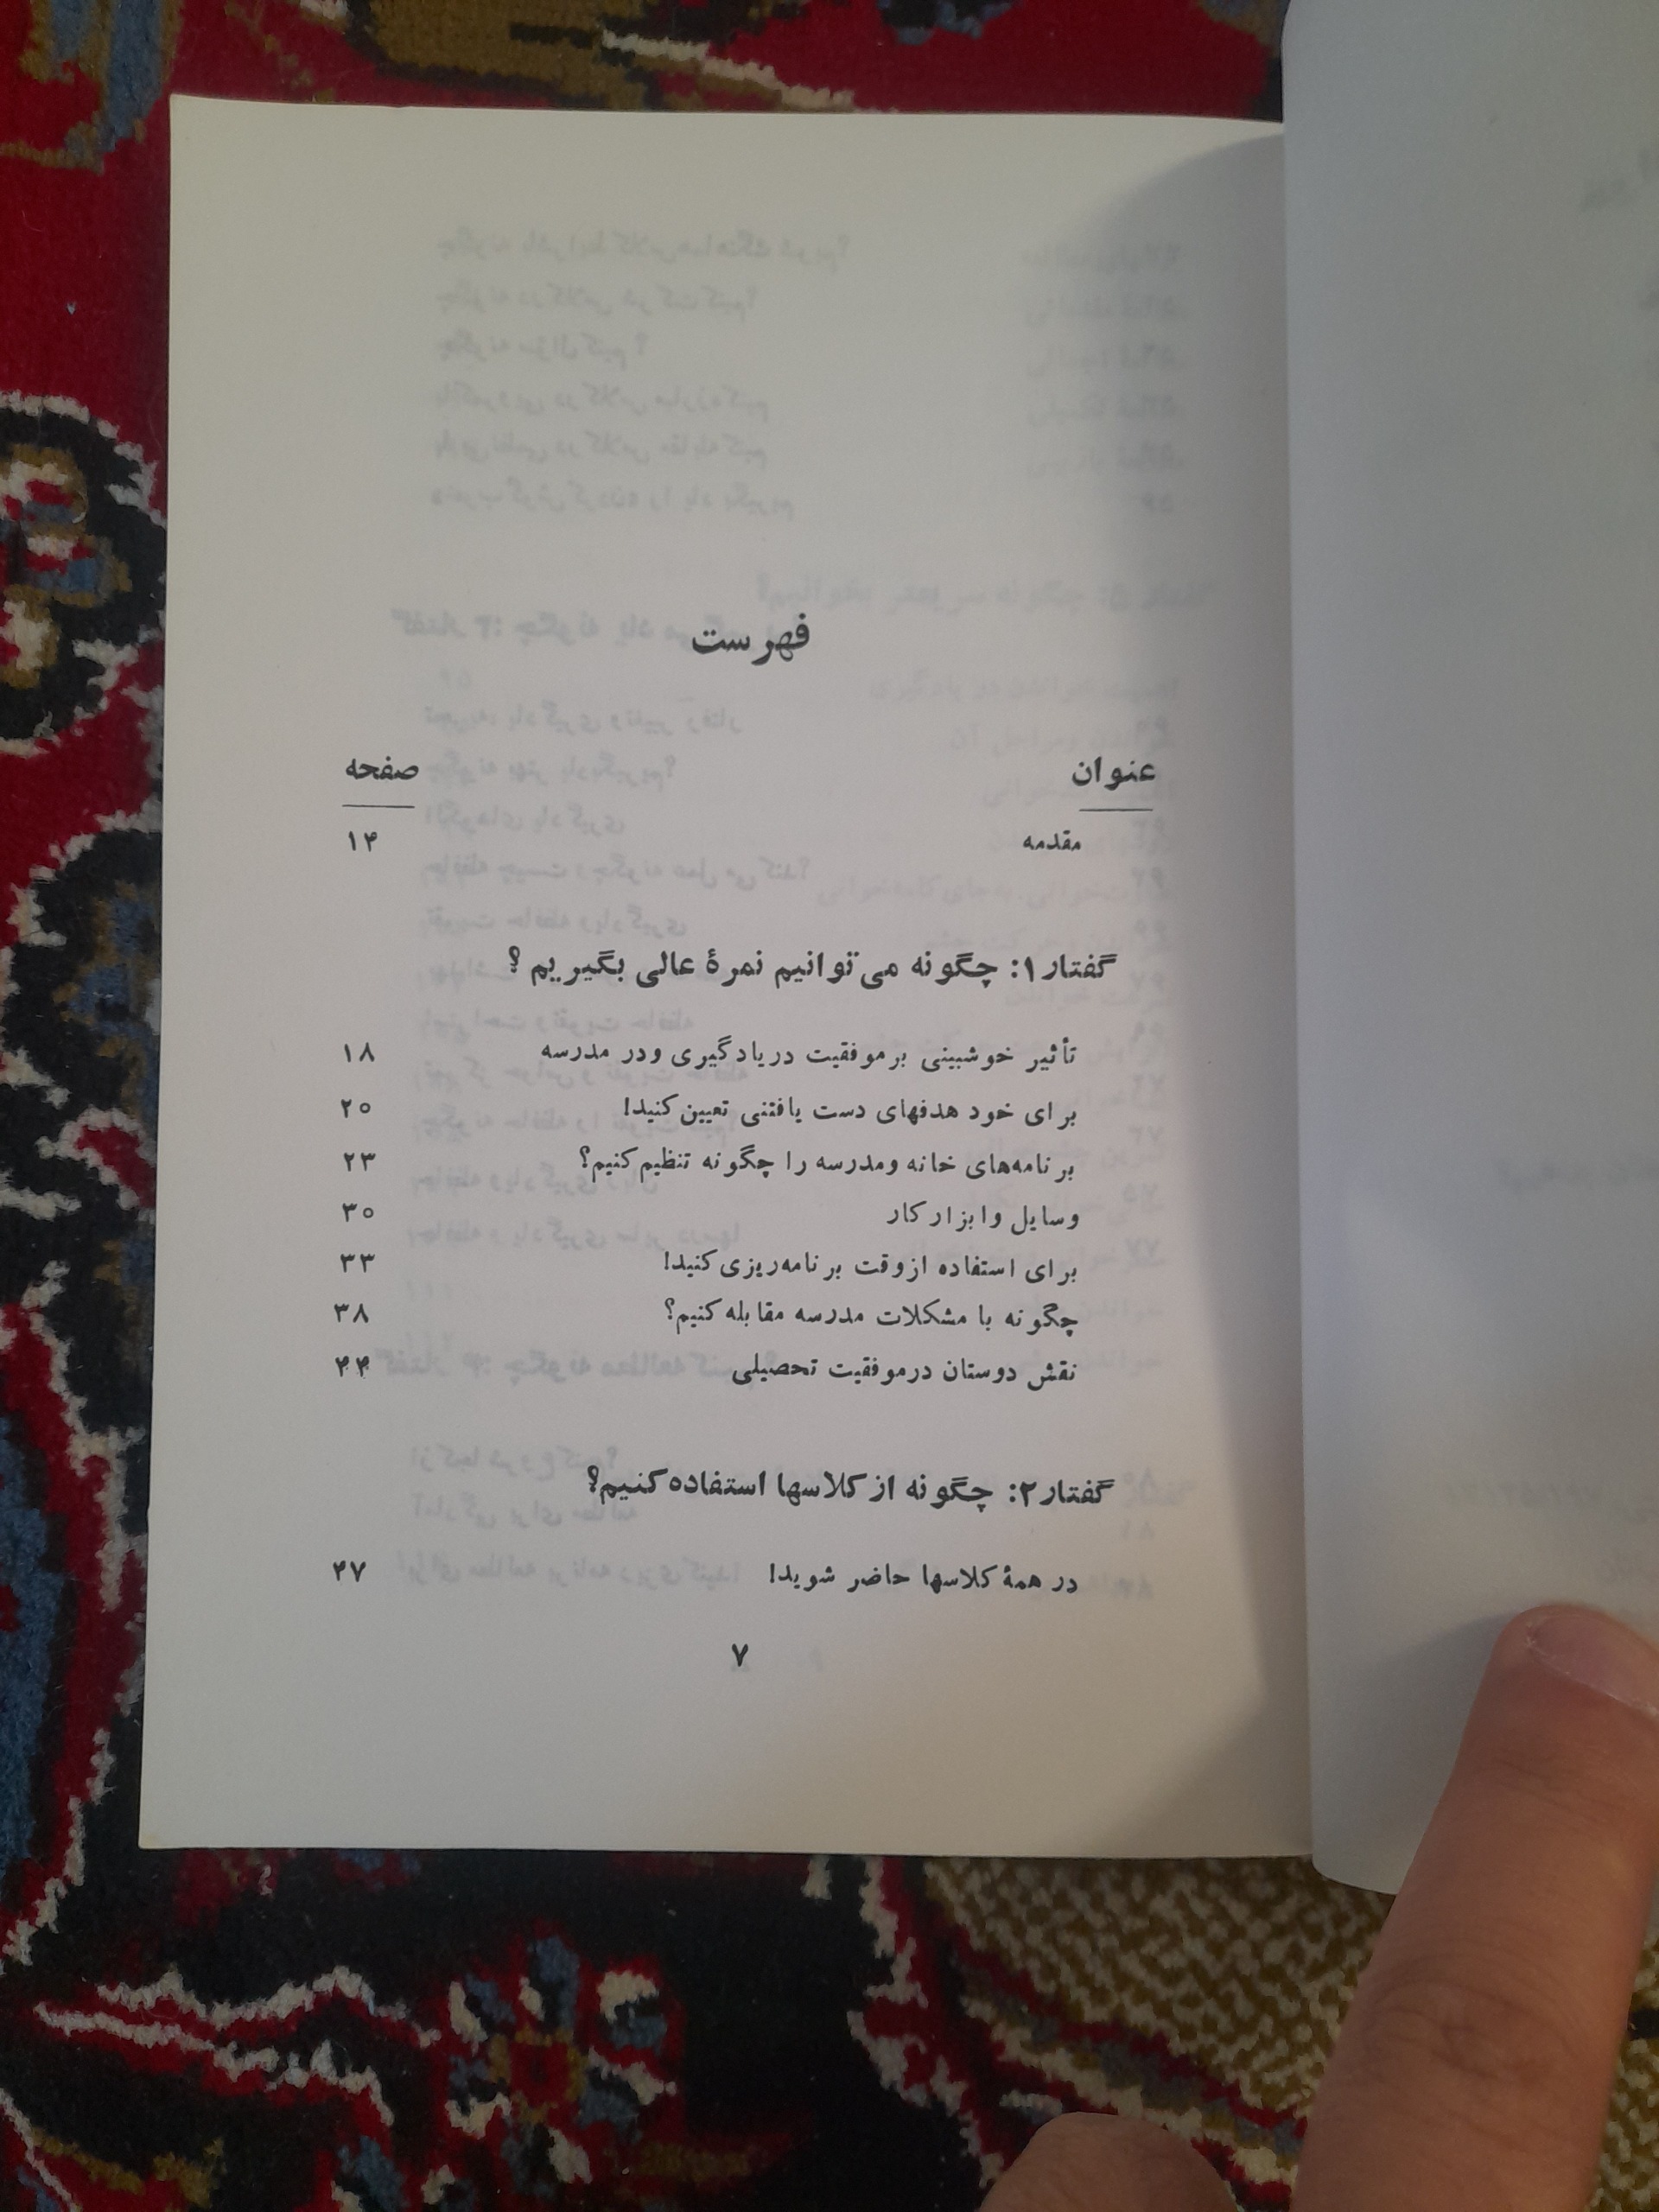 فهرست
عنوان صفحه
مقدمه ۱۴
گفتار ۱: چگونه می‌توانیم نمرهٔ عالی بگیریم ؟
تأثیر خوشبینی بر موفقیت در یادگیری و در مدرسه ۱۸
برای خود هدفهای دست یافتنی تعیین کنید! ۲۰
برنامه‌های خانه و مدرسه را چگونه تنظیم کنیم؟ ۲۳
وسایل و ابزار کار ۳۰
برای استفاده از وقت برنامه‌ریزی کنید! ۳۳
چگونه با مشکلات مدرسه مقابله کنیم؟ ۳۸
نقش دوستان در موفقیت تحصیلی ۴۴
گفتار ۲: چگونه از کلاسها استفاده کنیم؟
در همهٔ کلاسها حاضر شوید! ۴۷
۷